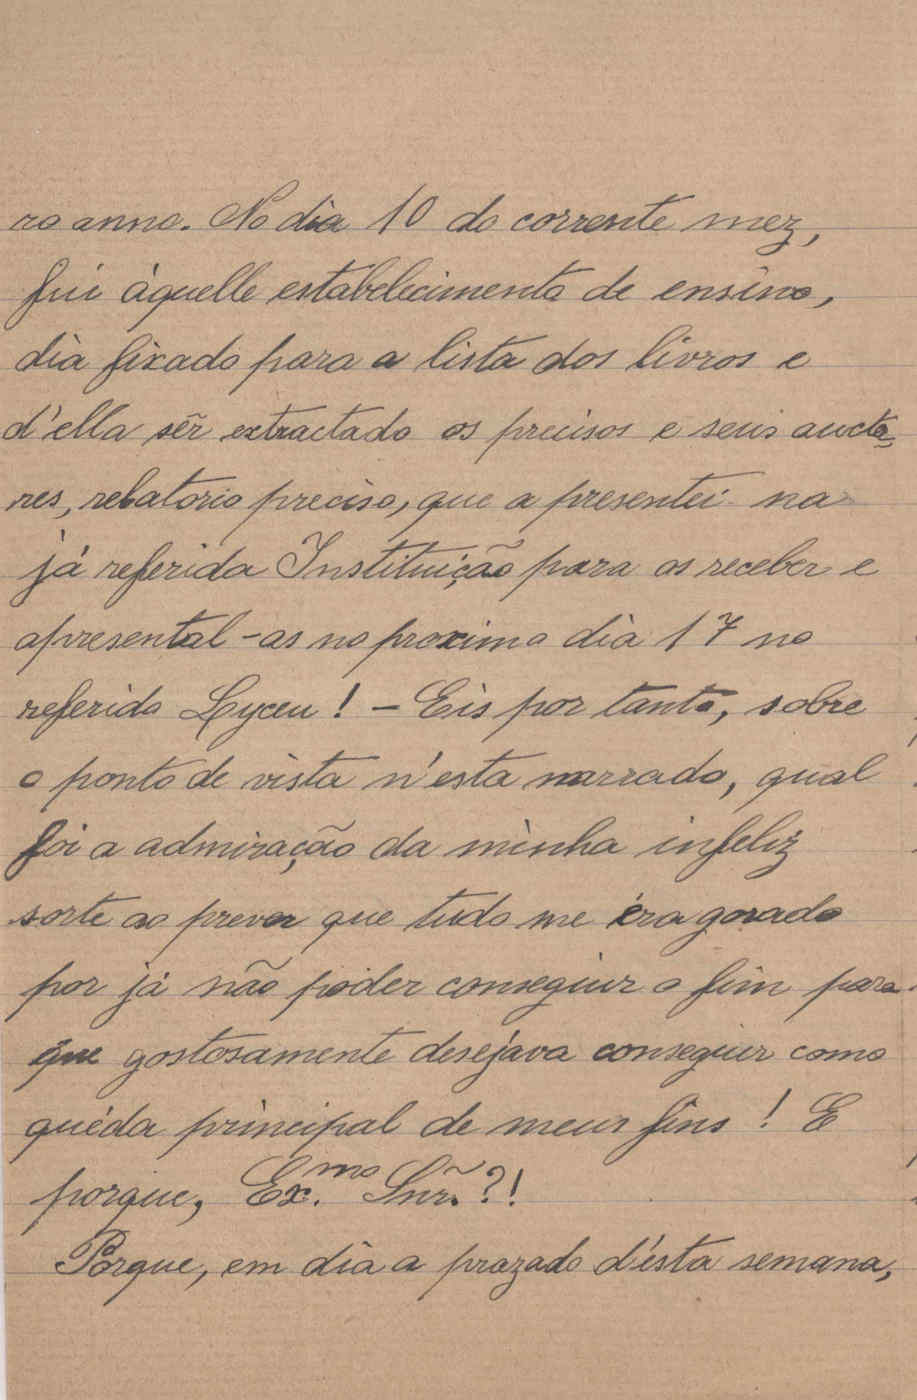 ro anno. No dia 10 do corrente mez,
fui áquelle estabelecimento de ensino,
dia fixado para a lista dos livros e
d'ella sêr extractado os precisos e seus aucto-
res, relatorio preciso, que a presentei na
já referida Instituição para os receber e
apresental-as no proximo dia 17 no
referido Lyceu! - Eis por tanto, sobre
o ponto de vista n'esta narrado, qual
foi a admiração da minha infeliz
sorte ao prever que tudo me éra gorado
por já não poder conseguir o fim para
que gostosamente desejava conseguir como
quéda principal de meus fins! E
porque, Ex.mo Snr.?!
Porque, em dia a prazado d'ésta semana,